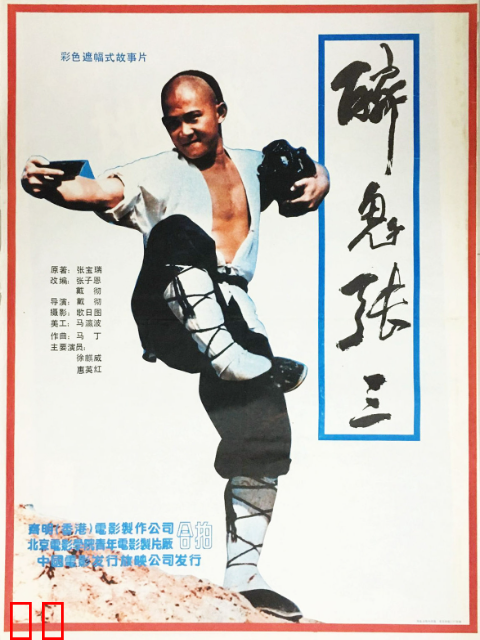 彩色遮幅式故事片
醉鬼张三
原著：张宝瑞
改编：张子恩
戴彻
导演：戴彻
摄影：歌日图
美工：马瀛波
作曲：马丁
主要演员：
徐麒威
惠英红
北京電影學院青年電影製片廠
合拍
中國電影发行放映公司发行